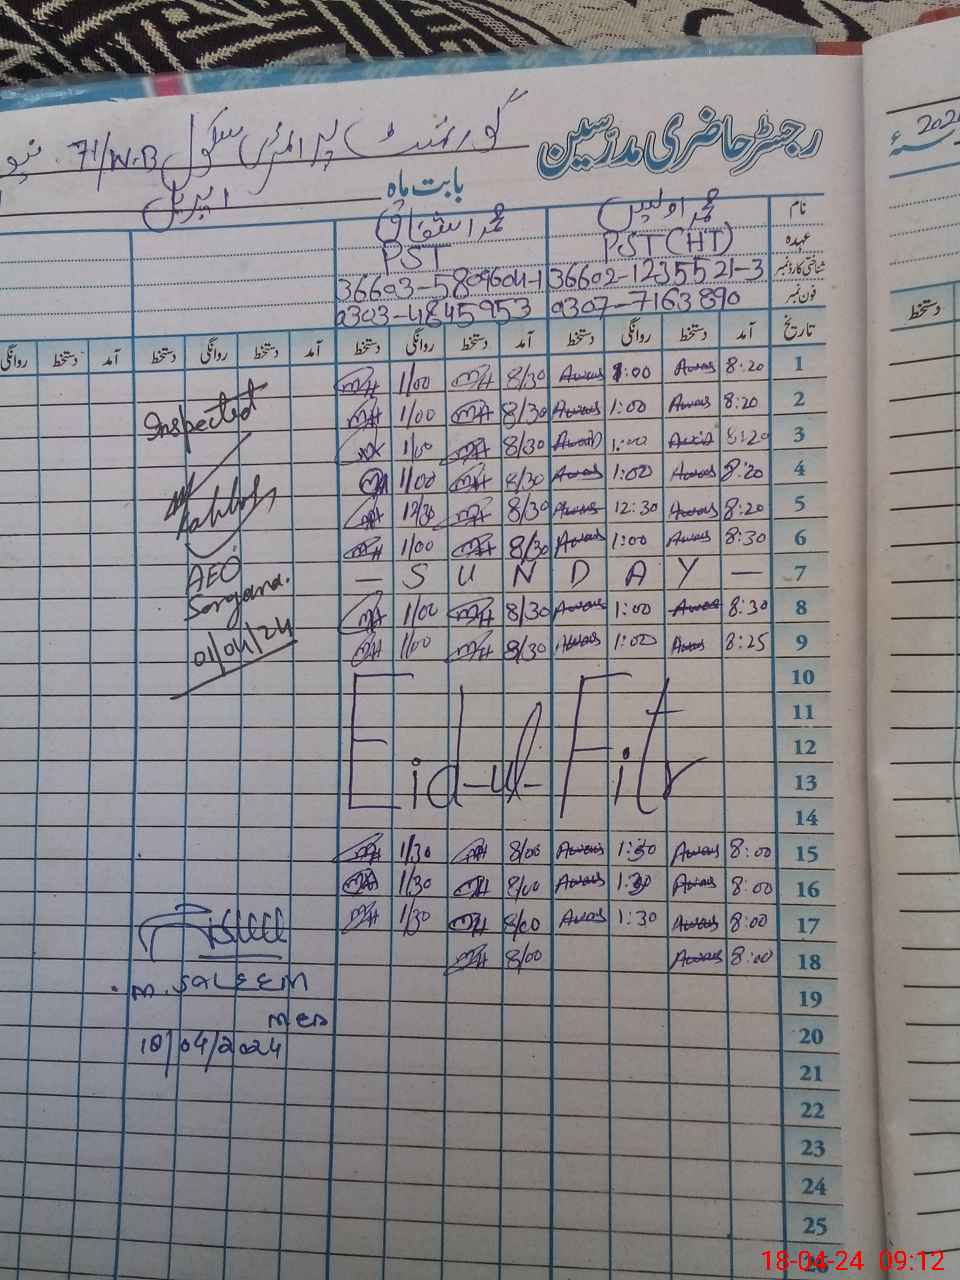 2024
رجسٹر حاضری مدرسین گورنمنٹ پرائمری سکول 71/W.B
بابت ماہ اپریل سنۂ
نام محمد اویس محمد اشفاق
عہدہ PST(HT) PST
شناختی کارڈ نمبر 36602-1235521-3 36603-5809604-1
فون نمبر 0307-7163890 0303-4845953
تاریخ آمد دستخط روانگی دستخط آمد دستخط روانگی دستخط آمد دستخط روانگی دستخط آمد دستخط روانگی دستخط
1 8:20 Awais 1:00 Awais 8/30 1/00
2 8:20 Awais 1:00 Awais 8/30 1/00
3 8:20 Awais 1:00 Awais 8/30 1/00
4 8:20 Awais 1:00 Awais 8/30 1/00
5 8:20 Awais 12:30 Awais 8/30 12/30
6 8:30 Awais 1:00 Awais 8/30 1/00
7 — S U N D A Y —
8 8:30 Awais 1:00 Awais 8/30 1/00
9 8:25 Awais 1:00 Awais 8/30 1/00
10
11
12 Eid-ul-Fitr
13
14
15 8:00 Awais 1:30 Awais 8/00 1/30
16 8:00 Awais 1:30 Awais 8/00 1/30
17 8:00 Awais 1:30 Awais 8/00 1/30
18 8:00 Awais 8/00
19
20
21
22
23
24
25
26
Inspected
AEO
Sargana.
01/04/24
M. SALEEM
MEA
18/04/2024
18-04-24 09:12